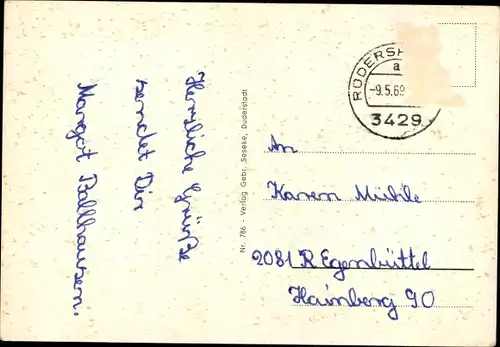 Herzliche Grüße
sendet Dir
Margot Ballhausen.
Nr. 786 - Verlag Gebr. Seseke, Duderstadt
RÜDERSH
a
-9.5.69
3429
An
Karen Mühle
2081 R Egenbüttel
Hainberg 90